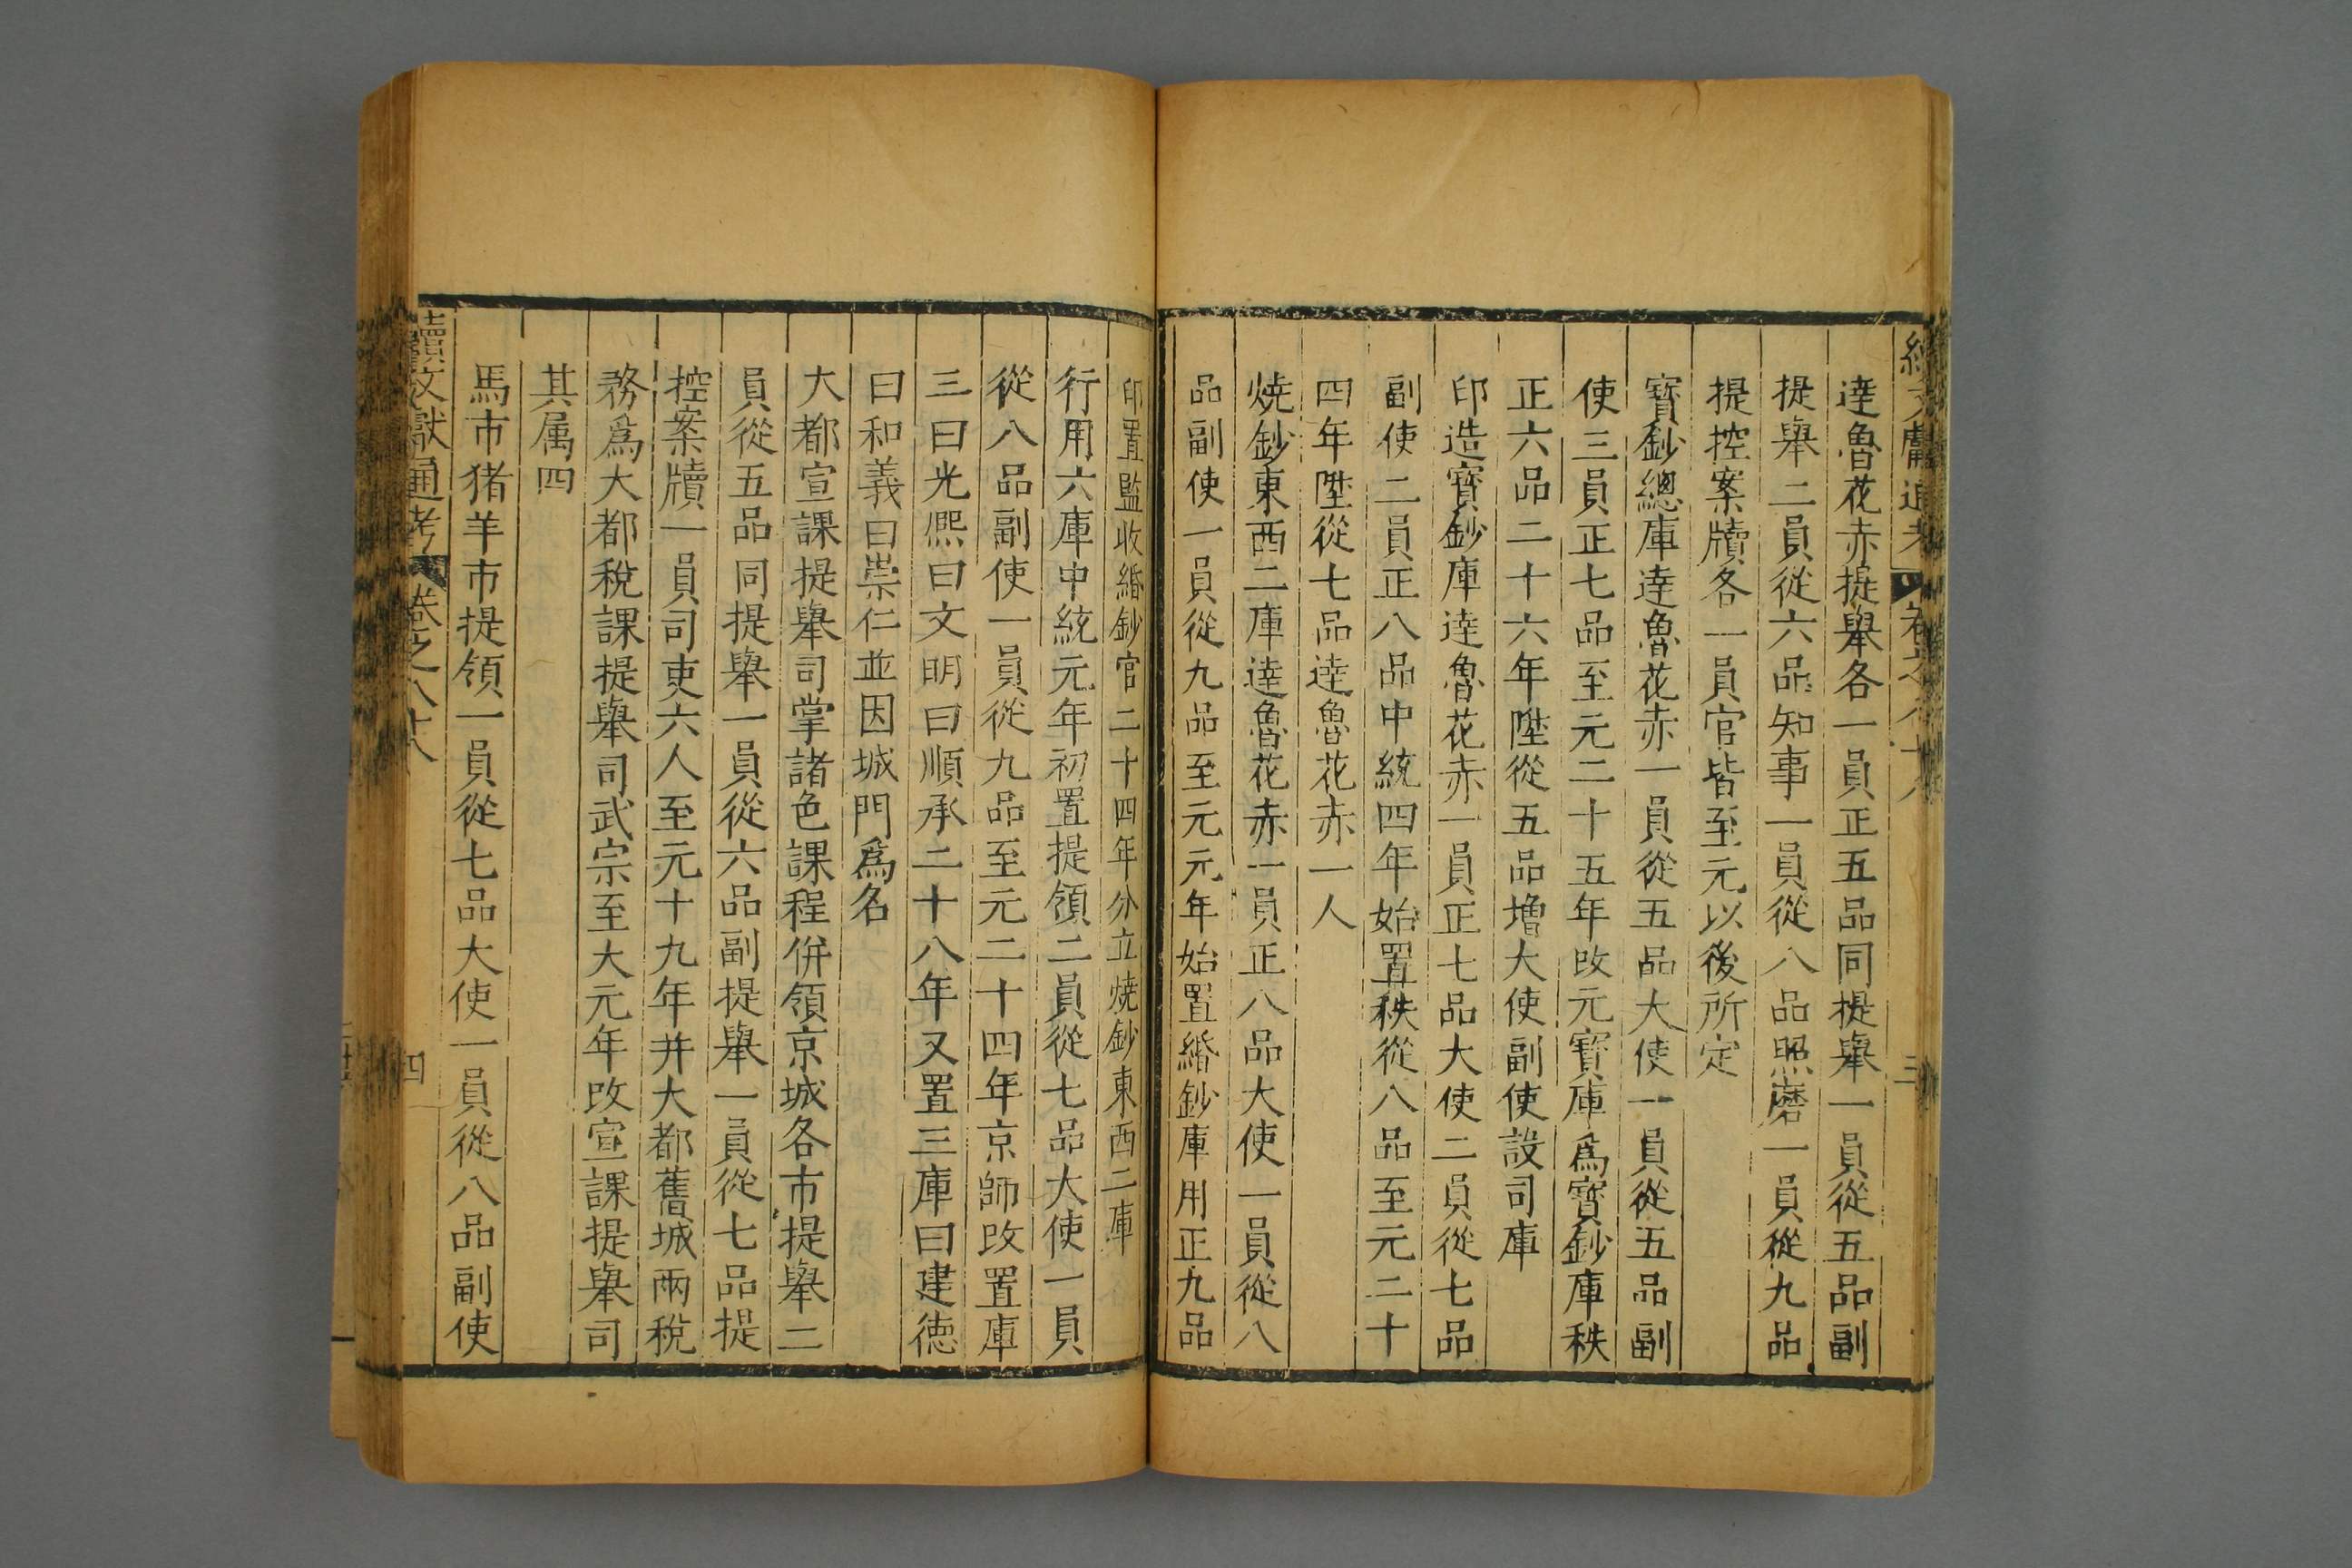 續文獻通考 卷之八十八 三
達魯花赤提舉各一員正五品同提舉一員從五品副
提舉二員從六品知事一員從八品照磨一員從九品
提控案牘各一員官皆至元以後所定
寳鈔總庫達魯花赤一員從五品大使一員從五品副
使三員正七品至元二十五年改元寳庫爲寳鈔庫秩
正六品二十六年陞從五品増大使副使設司庫
印造寳鈔庫達魯花赤一員正七品大使二員從七品
副使二員正八品中統四年始置秩從八品至元二十
四年陞從七品達魯花赤一人
焼鈔東西二庫達魯花赤一員正八品大使一員從八
品副使一員從九品至元元年始置緡鈔庫用正九品
印置監收緡鈔官二十四年分立焼鈔東西二庫
行用六庫中統元年初置提領二員從七品大使一員
從八品副使一員從九品至元二十四年京師改置庫
三曰光熈曰文明曰順承二十八年又置三庫曰建徳
曰和義曰崇仁並因城門爲名
大都宣課提舉司掌諸色課程併領京城各市提舉二
員從五品同提舉一員從六品副提舉一員從七品提
控案牘一員司吏六人至元十九年并大都舊城兩稅
務爲大都稅課提舉司武宗至大元年改宣課提舉司
其属四
馬市猪羊市提領一員從七品大使一員從八品副使
續文獻通考 卷之八十八 四